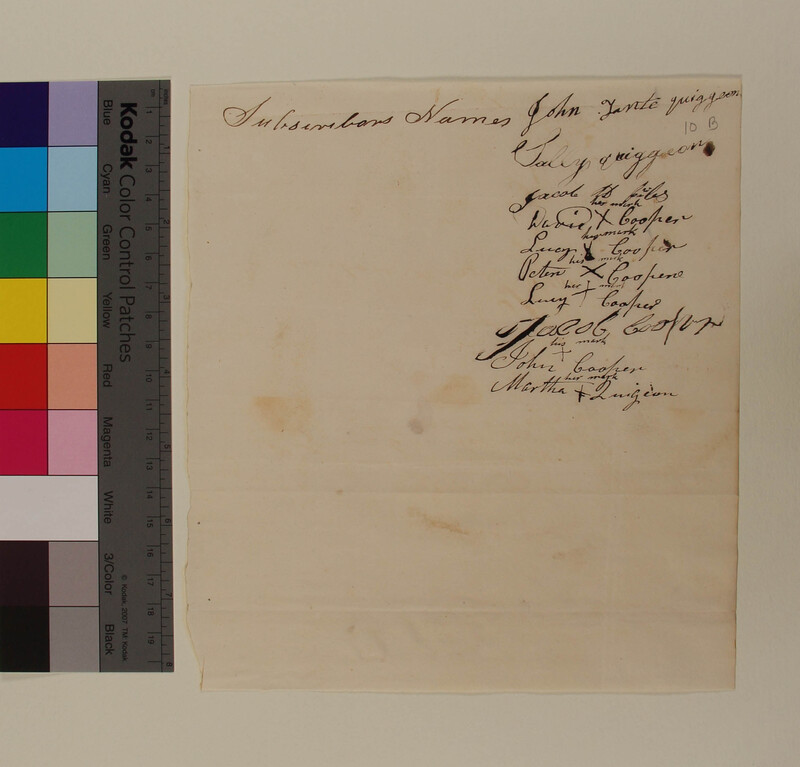 Subscribars Names John Tantc quiggeon
10 B
Saley quiggeon
Jacob
her mark
David X Cooper
his mark
Lucy X Cooper
his mark
Peter X Coopere
her mark
Lucy + Cooper
Jacob Cooper
his mark
+
John Cooper
her mark
Martha + Quigion
Kodak Color Control Patches
Blue
Cyan
Green
Yellow
Red
Magenta
White
3/Color
Black
© Kodak, 2007 TM: Kodak
cm 1 2 3 4 5 6 7 8 9 10 11 12 13 14 15 16 17 18 19
inches 1 2 3 4 5 6 7 8